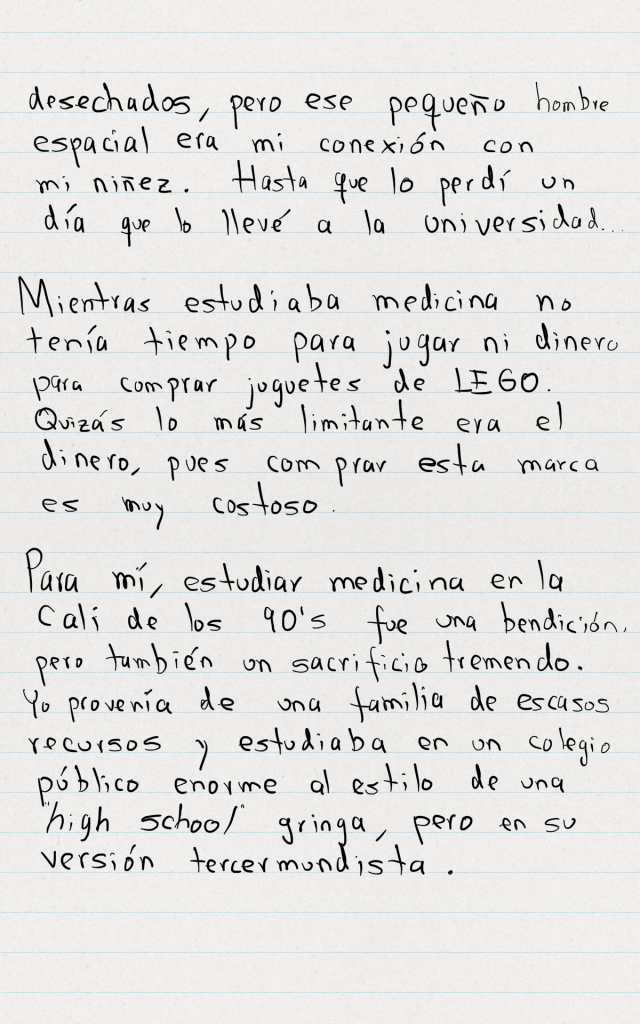 desechados, pero ese pequeño hombre
espacial era mi conexión con
mi niñez. Hasta que lo perdí un
día que lo llevé a la universidad...
Mientras estudiaba medicina no
tenía tiempo para jugar ni dinero
para comprar juguetes de LEGO.
Quizás lo más limitante era el
dinero, pues comprar esta marca
es muy costoso.
Para mí, estudiar medicina en la
Cali de los 90's fue una bendición,
pero también un sacrificio tremendo.
Yo provenía de una familia de escasos
recursos y estudiaba en un colegio
público enorme al estilo de una
"high school" gringa, pero en su
versión tercermundista.